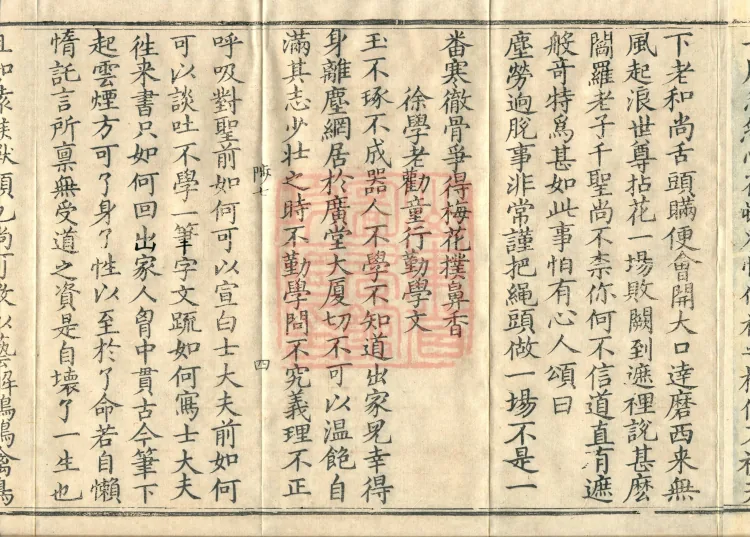 下老和尚舌頭瞞便會開大口達磨西來無
風起浪世尊拈花一場敗闕到遮裡說甚麼
閻羅老子千聖尚不柰你何不信道直有遮
般奇特爲甚如此事怕有心人頌曰
塵勞逈脫事非常謹把繩頭做一場不是一
畨寒徹骨爭得梅花撲鼻香
徐學老勸童行勤學文
玉不琢不成器人不學不知道出家兒幸得
身離塵網居於廣堂大厦切不可以温飽自
滿其志少壯之時不勤學問不究義理不正
七 四
呼吸對聖前如何可以宣白士大夫前如何
可以談吐不學一筆字文疏如何寫士大夫
徃来書只如何回出家人胷中貫古今筆下
起雲煙方可了身了性以至於了命若自懶
惰託言所稟無受道之資是自壞了一生也